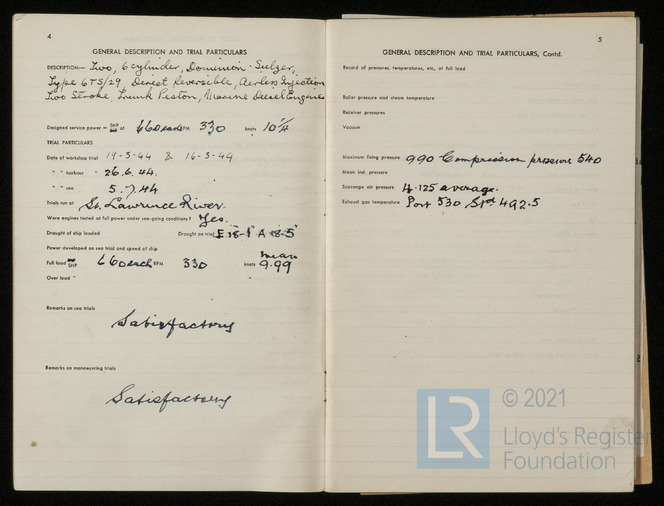 4
GENERAL DESCRIPTION AND TRIAL PARTICULARS
DESCRIPTION:- Two, 6 cylinder, Dominion-Sulzer,
Type 6TS/29 Direct Reversible, Airless Injection
Two Stroke, Trunk Piston, Marine Diesel Engines
Designed service power = SHP at 660 each RPM 330 knots 10 1/4
TRIAL PARTICULARS
Date of workshop trial 19-3-44 & 16-3-44
" " harbour " 26.6.44.
" " sea 5.7.44
Trials run at St. Lawrence River.
Were engines tested at full power under sea-going conditions? Yes.
Draught of ship loaded Draught on trial F 18-1" A 18-5"
Power developed on sea trial and speed of ship
mean
Full load SHP 660 each RPM 330 knots 9.99
Over load "
Remarks on sea trials
Satisfactory
Remarks on manoeuvring trials
Satisfactory
5
GENERAL DESCRIPTION AND TRIAL PARTICULARS, Contd.
Record of pressures, temperatures, etc, at full load
Boiler pressure and steam temperature
Receiver pressures
Vacuum
Maximum firing pressure 990 Compression pressure 540
Mean ind. pressure
Scavenge air pressure 4.125 average.
Exhaust gas temperature Port 530 Stbd 492.5
LR
© 2021
Lloyd's Register
Foundation